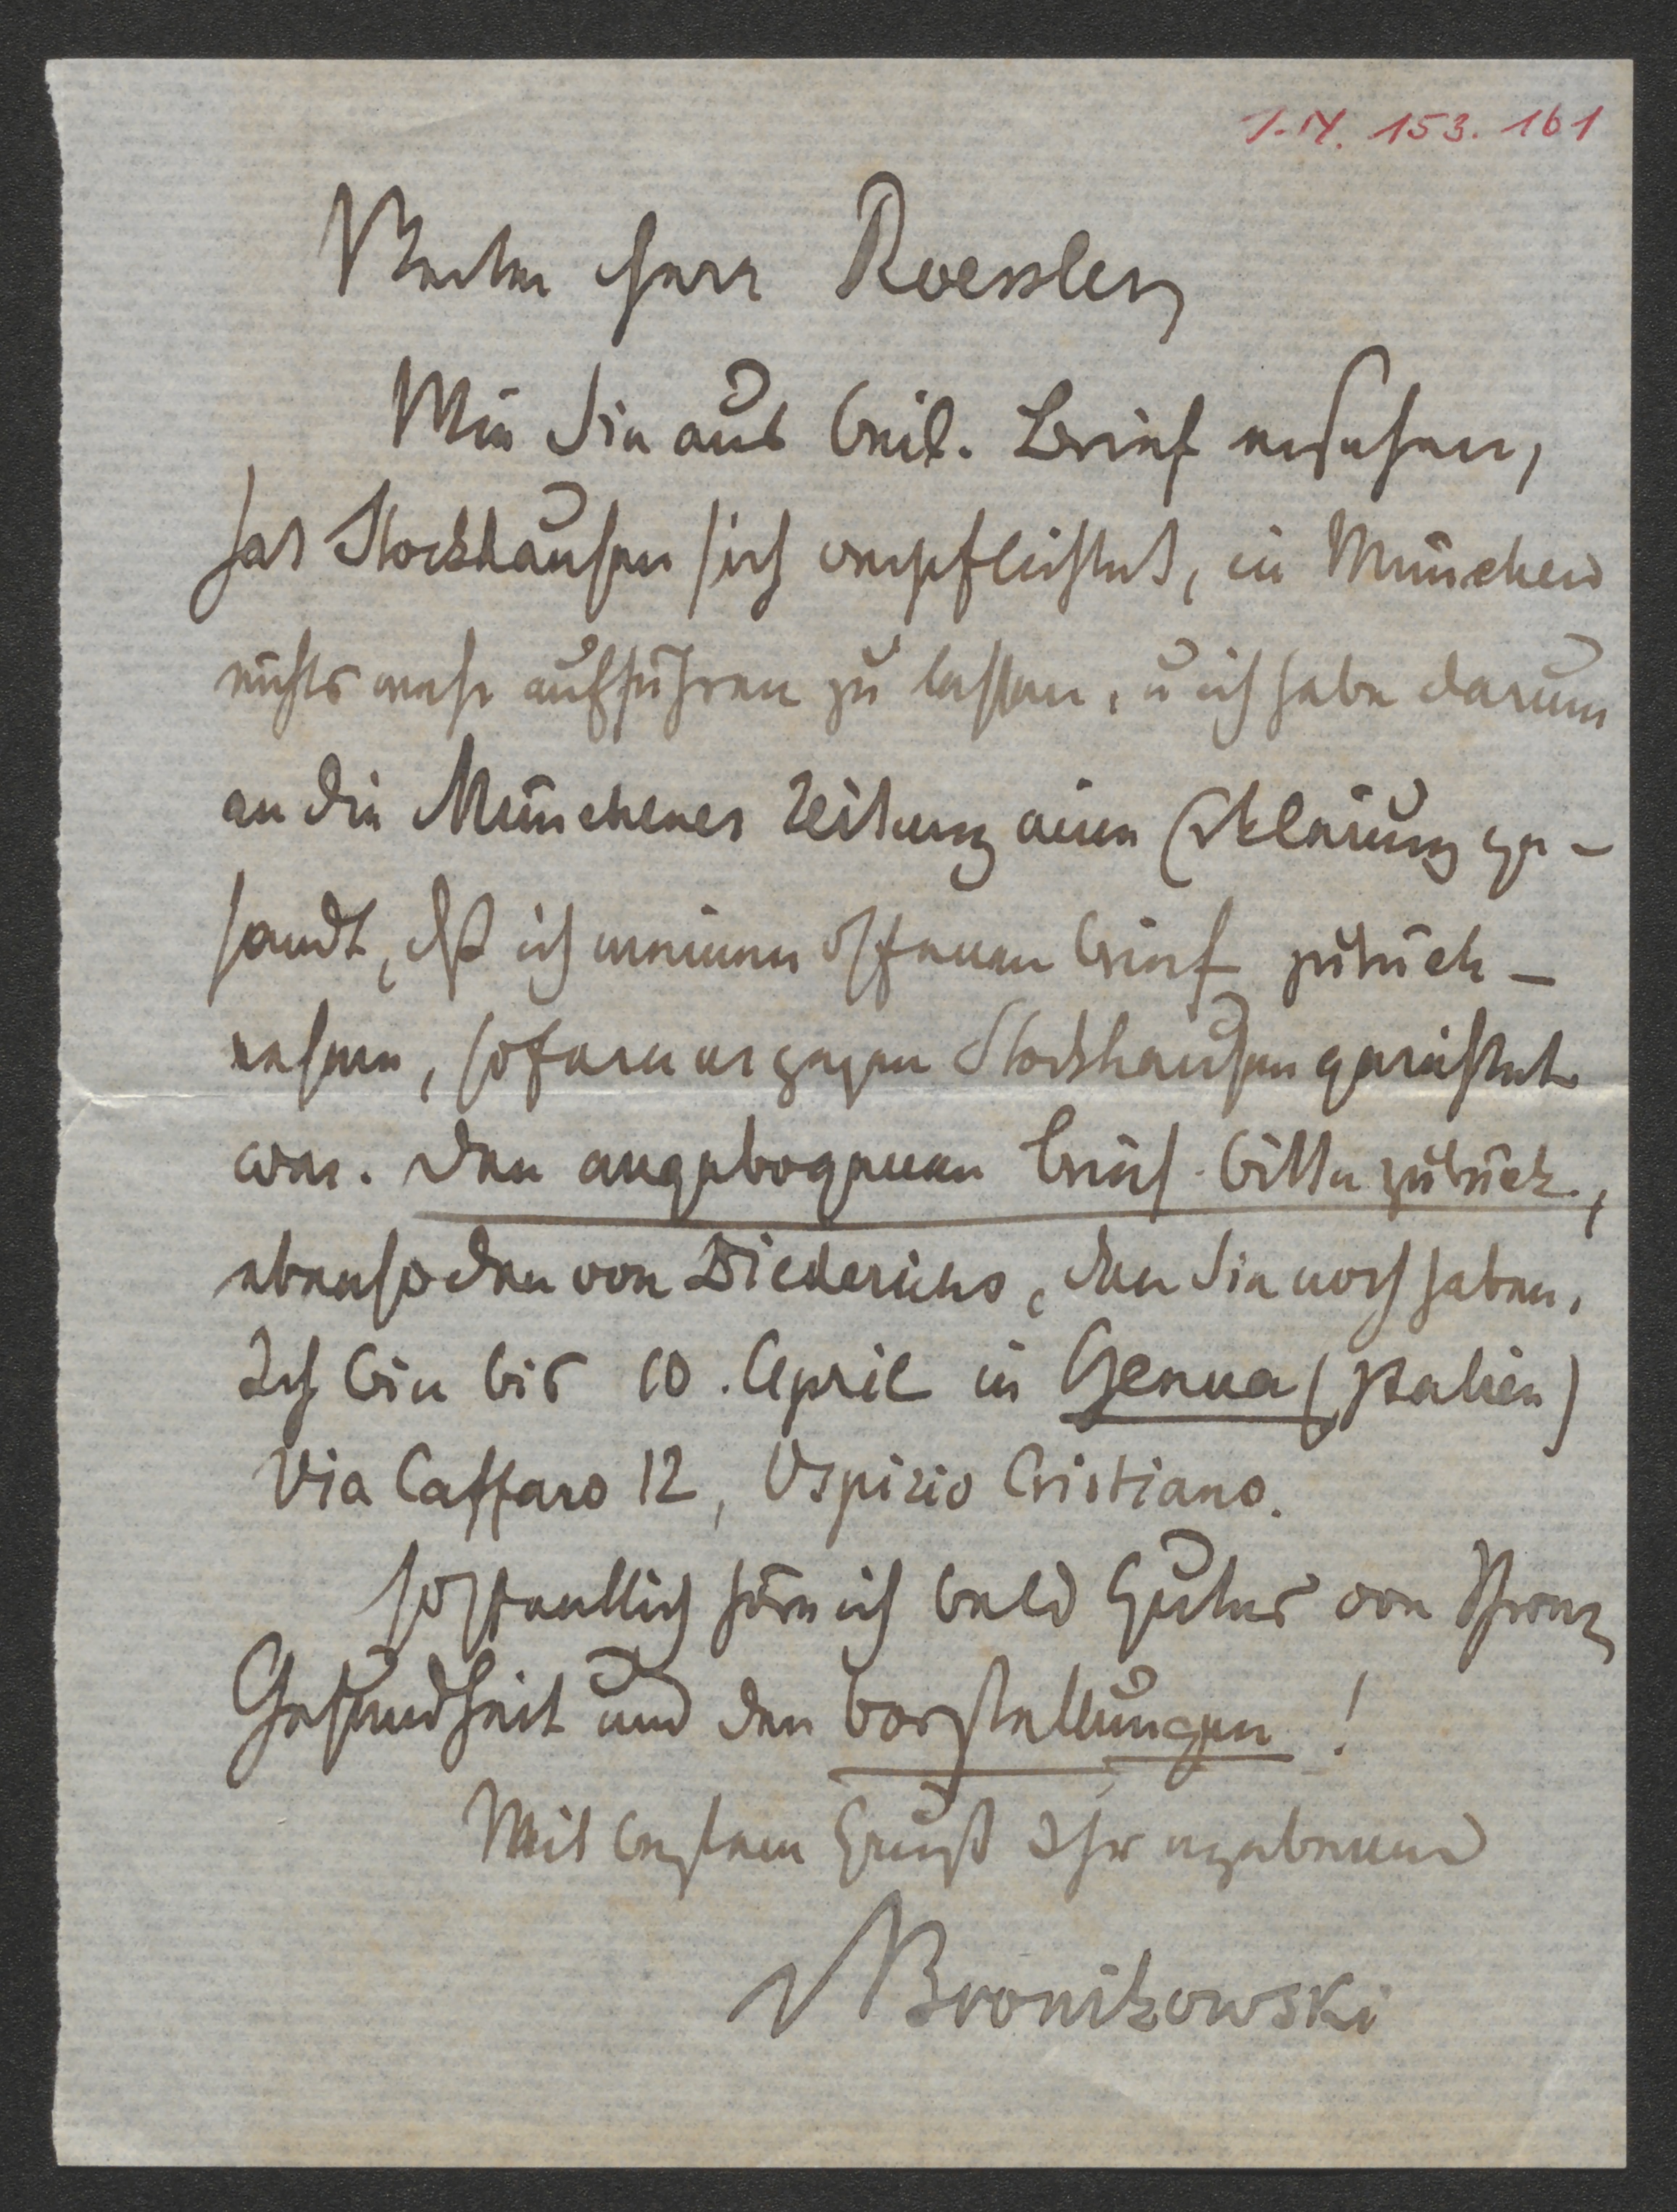 I.N. 153.161
Werter Herr Roessler,
Wie Sie aus beil. Brief ersehen,
hat Stockhausen sich verpflichtet, in München
nichts mehr aufführen zu lassen, u ich habe darum
an die Münchener Zeitung eine Erklärung ge-
sandt, dß ich meinen offenen Brief zurück-
nehme, sofern er gegen Stockhausen gerichtet
war. Den angebogenen Brief bitte zurück,
ebenso den von Diederichs, den Sie noch haben.
Ich bin bis 10. April in Genua (Italien)
Via Caffaro 12, Ospizio Cristiano.
Hoffentlich höre ich bald Gutes von Ihrer
Gesundheit und den Vorstellungen!
Mit bestem Gruß Ihr ergebener
vBronikowski